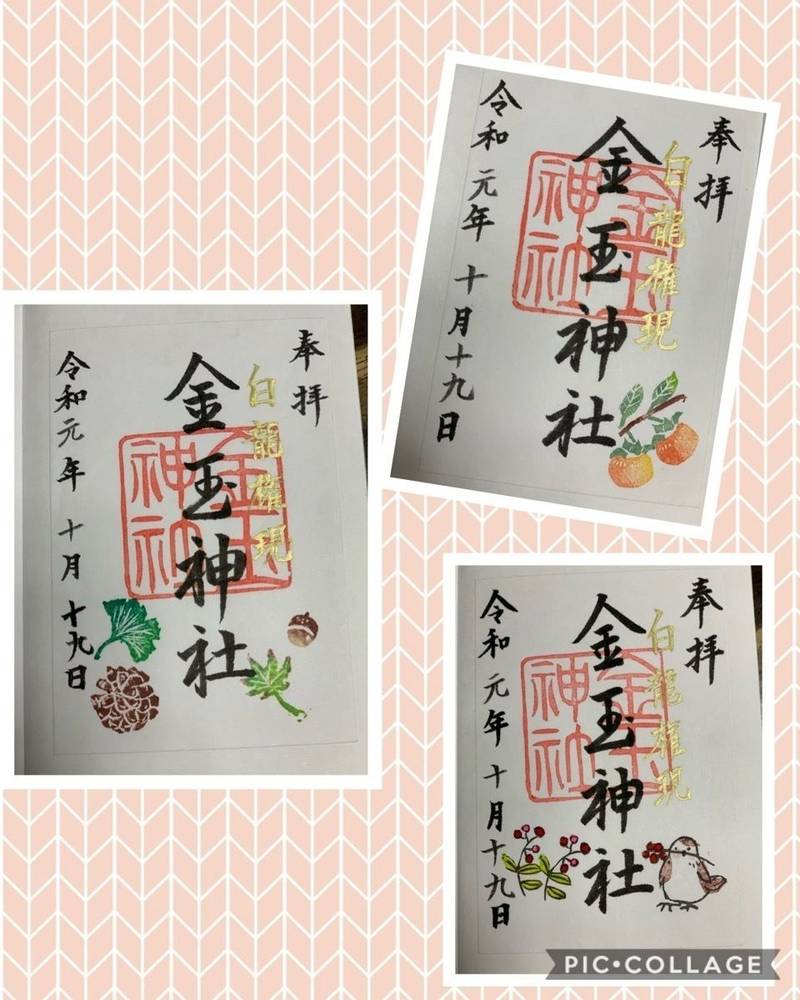 奉拝
白龍権現
金玉神社
金玉神社
令和元年 十月十九日
奉拝
白龍権現
金玉神社
金玉神社
令和元年 十月十九日
奉拝
白龍権現
金玉神社
金玉神社
令和元年 十月十九日
PIC•COLLAGE